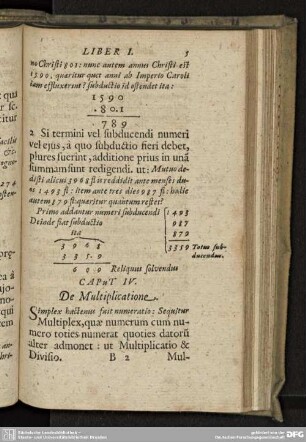 LIBER I. 5
no Christi 801: nunc autem annus Christi est
1590, quæritur quot anni ab Imperio Caroli
iam effluxerint? subductio id ostendet ita:
1590
801
789
2 Si termini vel subducendi numeri
vel ejus, à quo subductio fieri debet,
plures fuerint, additione prius in unā
summam sunt redigendi. ut: Mutuo de-
disti alicui 3968 fl: is reddidit ante menses du-
os 1493 fl: item ante tres dies 987 fl: hodie
autem 879 fl: quæritur quantum restet?
Primo addantur numeri subducendi 1493
Deinde fiat subductio 987
ita 879
3968 3359 Totus sub-
3359 ducendus.
609 Reliquus solvendus
CAPUT IV.
De Multiplicatione.
Simplex hactenus fuit numeratio: Sequitur
Multiplex, quæ numerum cum nu-
mero toties numerat quoties datorū
alter admonet: ut Multiplicatio &
Divisio. B 2 Mul-